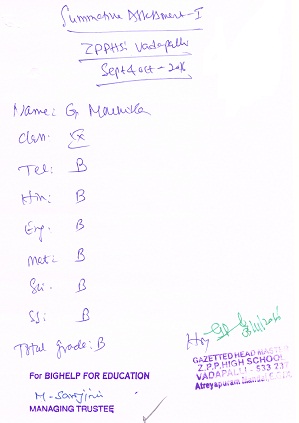 Summative Assessment-I
ZPPHS: Vadapalli
Sept & oct - 2016
Name: G Mounika
Class:
Tel: B
Hin: B
Eng: B
Mat: B
Sci: B
SS: B
Total grade: B
For BIGHELP FOR EDUCATION
MANAGING TRUSTEE
GAZETTED HEAD MASTER
Z.P.P.HIGH SCHOOL
VADAPALLI - 533 237
Atreyapuram